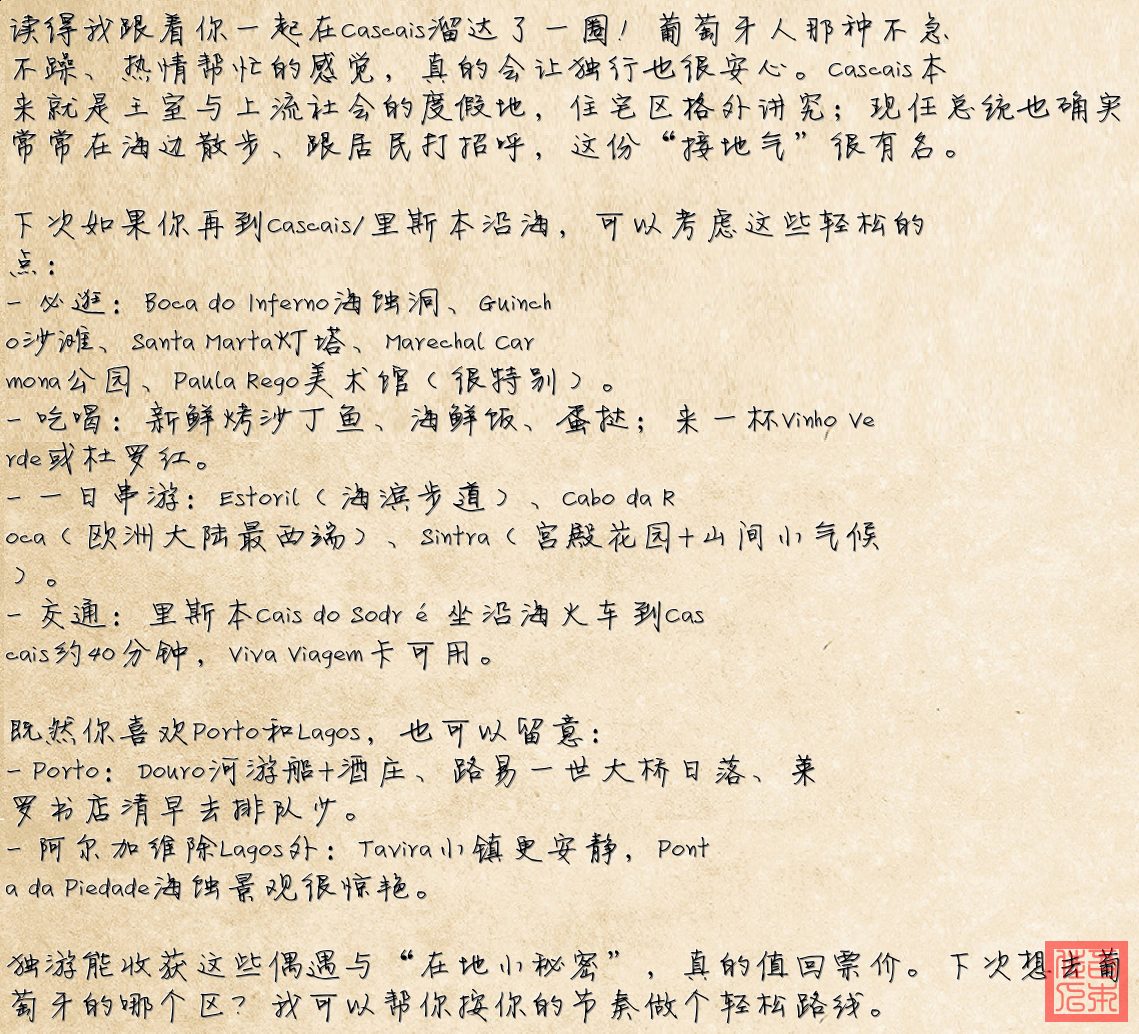 读得我跟着你一起在Cascais溜达了一圈！葡萄牙人那种不急
不躁、热情帮忙的感觉，真的会让独行也很安心。Cascais本
来就是王室与上流社会的度假地，住宅区格外讲究；现任总统也确实
常常在海边散步、跟居民打招呼，这份“接地气”很有名。
下次如果你再到Cascais/里斯本沿海，可以考虑这些轻松的
点：
- 必逛：Boca do Inferno海蚀洞、Guinch
o沙滩、Santa Marta灯塔、Marechal Car
mona公园、Paula Rego美术馆（很特别）。
- 吃喝：新鲜烤沙丁鱼、海鲜饭、蛋挞；来一杯Vinho Ve
rde或杜罗红。
- 一日串游：Estoril（海滨步道）、Cabo da R
oca（欧洲大陆最西端）、Sintra（宫殿花园+山间小气候
）。
- 交通：里斯本Cais do Sodré坐沿海火车到Cas
cais约40分钟，Viva Viagem卡可用。
既然你喜欢Porto和Lagos，也可以留意：
- Porto：Douro河游船+酒庄、路易一世大桥日落、莱
罗书店清早去排队少。
- 阿尔加维除Lagos外：Tavira小镇更安静，Pont
a da Piedade海蚀景观很惊艳。
独游能收获这些偶遇与“在地小秘密”，真的值回票价。下次想去葡
萄牙的哪个区？我可以帮你按你的节奏做个轻松路线。